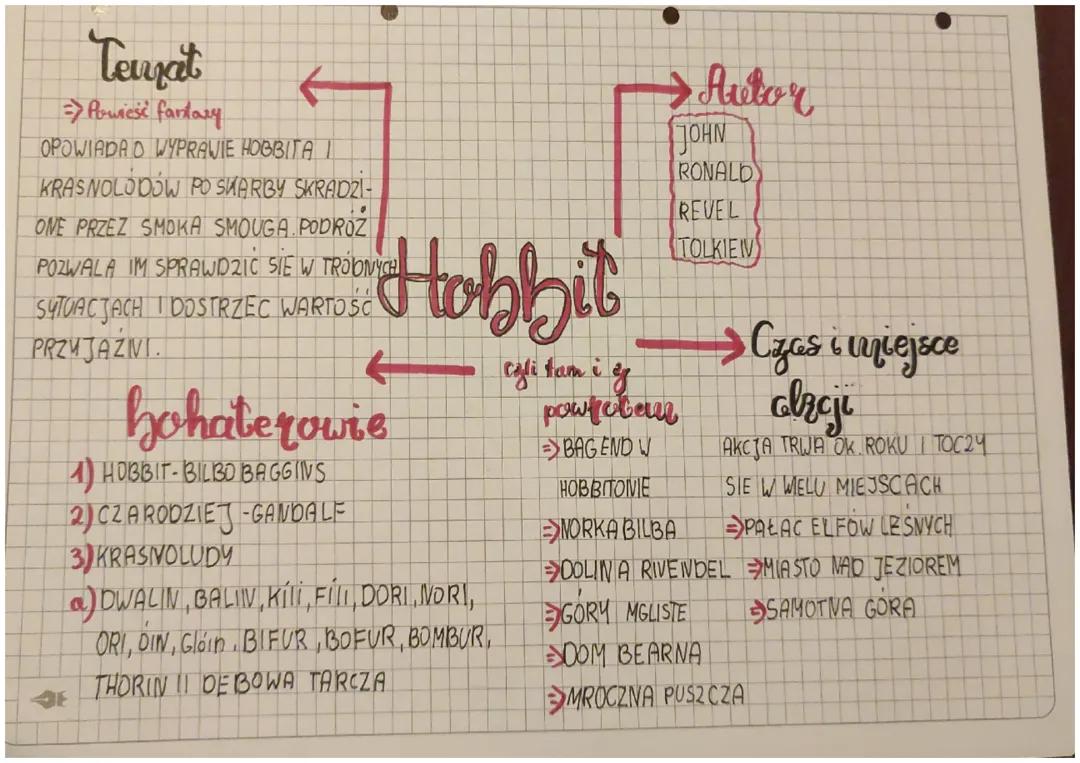 Temat
=> Powieść fantazy
OPOWIADA O WYPRAWIE HOBBITA I
KRASNOLÓDÓW PO SKARBY SKRADZI-
ONE PRZEZ SMOKA SMOUGA. PODRÓŻ
POZWALA IM SPRAWDZIĆ SIĘ W TRÓDNYCH
SYTUACJACH I DOSTRZEC WARTOŚĆ
PRZYJAŹNI.
Autor
JOHN
RONALD
REUEL
TOLKIEN
Hobbit
czyli tam i z
powrotem
bohaterowie
1) HOBBIT - BILBO BAGGINS
2) CZARODZIEJ - GANDALF
3) KRASNOLUDY
a) DWALIN, BALIN, Kíli, Fíli, DORI, NORI,
ORI, ÓIN, Glóin, BIFUR, BOFUR, BOMBUR,
THORIN II DĘBOWA TARCZA
Czas i miejsce
akcji
AKCJA TRWA OK. ROKU I TOCZY
SIĘ W WIELU MIEJSCACH
=> BAG END W
HOBBITONIE
=> NORKA BILBA
=> DOLINA RIVENDEL
=> GÓRY MGLISTE
=> DOM BEARNA
=> MROCZNA PUSZCZA
=> PAŁAC ELFÓW LEŚNYCH
=> MIASTO NAD JEZIOREM
=> SAMOTNA GÓRA